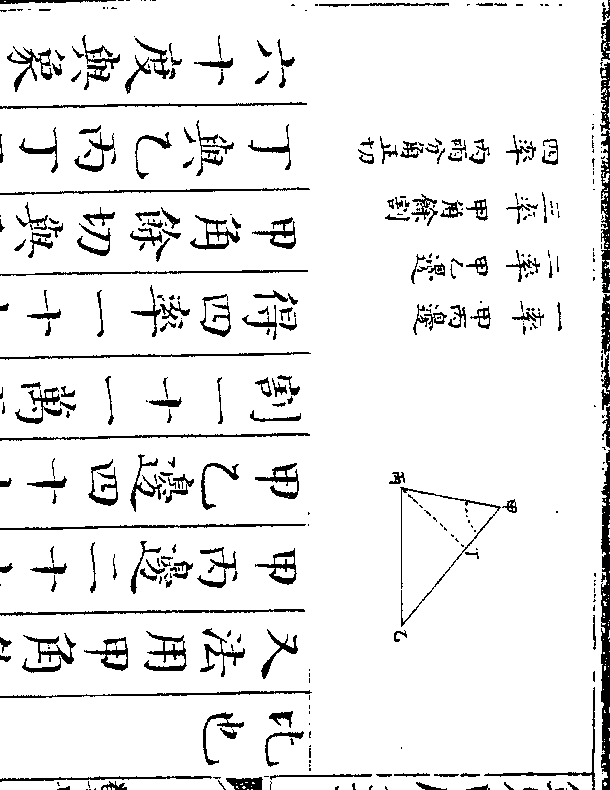 一率 甲丙邊
二率 甲乙邊
三率 甲角餘割
四率 丙兩分角正切
甲
丙
丁
乙
比也
又法用甲角
甲丙邊二十
甲乙邊四十
割一十一萬
得四率一十
甲角餘切與
丁與乙丙丁
六十度與象